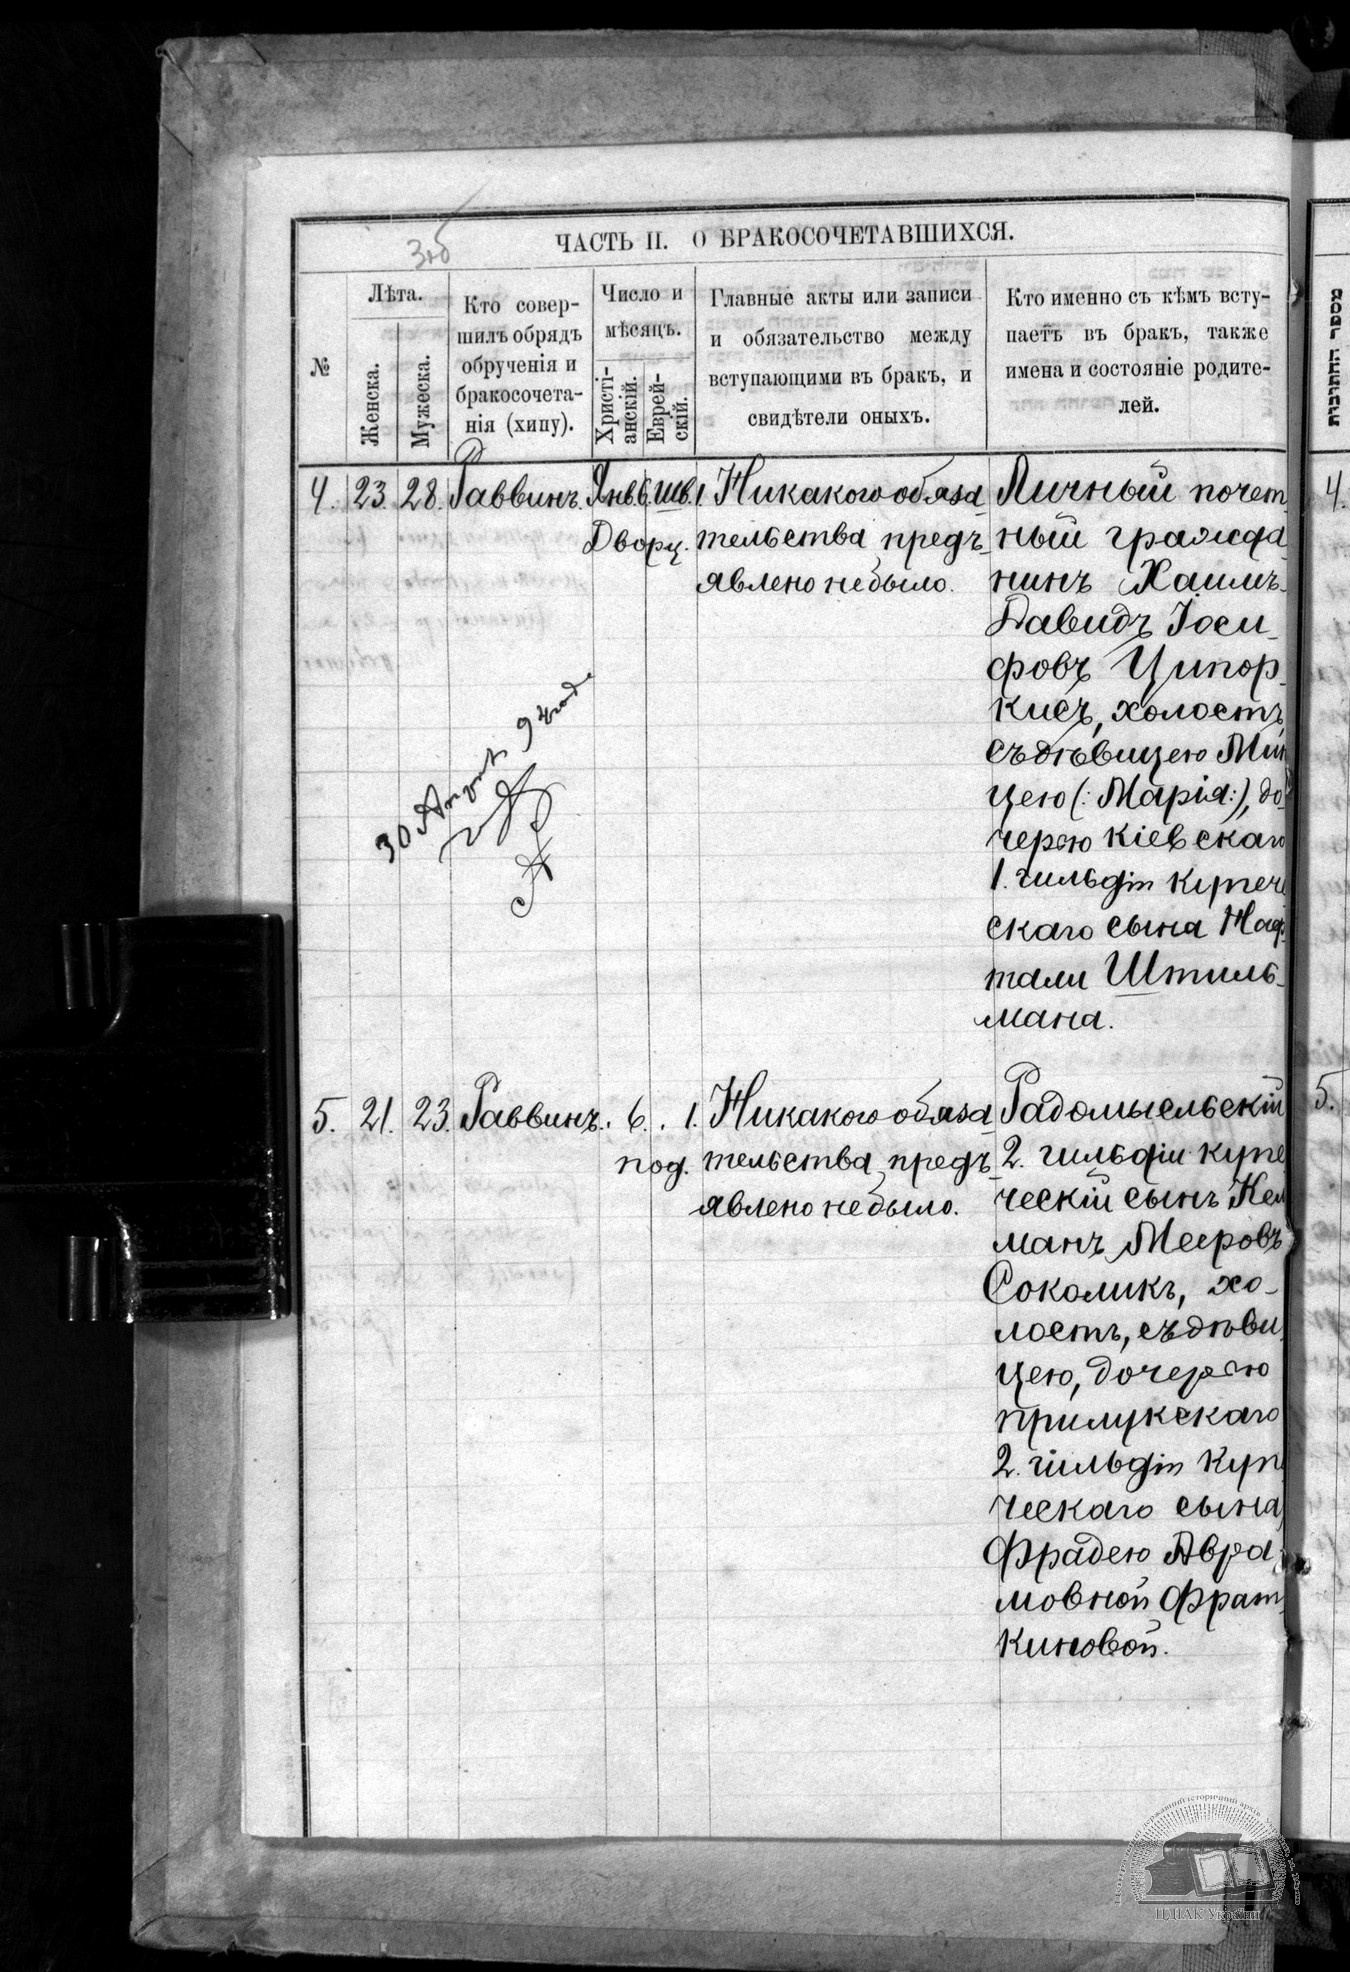 ЧАСТЬ II. О БРАКОСОЧЕТАВШИХСЯ.
№
Лѣта.
Женска.
Мужеска.
Кто совер-
шилъ обрядъ
обрученія и
бракосочета-
нія (хипу).
Число и
мѣсяцъ.
Христі-
анскій.
Еврей-
скій.
Главные акты или записи
и обязательство между
вступающими въ бракъ, и
свидѣтели оныхъ.
Кто именно съ кѣмъ всту-
паетъ въ бракъ, также
имена и состояніе родите-
лей.
מספר החתונות
4. 23. 28. Раввинъ. Янв. 6. Шв. 1.
Дворц.
Никакого обяза-
тельства предъ-
явлено не было.
Личный почет-
ный гражда-
нинъ Хаимъ-
Давидъ Іоси-
фовъ Ципор-
кисъ, холостъ,
съ дѣвицею Мин-
цею (: Марія:), до-
черью кіевскаго
1. гильдіи купече
скаго сына Наф-
тали Штиль-
мана.
30 August
5. 21. 23. Раввинъ. 6. 1.
под.
Никакого обяза-
тельства предъ-
явлено не было.
Радомысльскій
2. гильдіи купе
ческій сынъ Кел
манъ Мееровъ
Соколикъ, хо-
лостъ, съ дѣви
цею, дочерью
прилукскаго
2. гильдіи купе
ческаго сына
Фрадею Авра-
мовной Фрат-
киновой.
4.
5.
ЦДІАК України